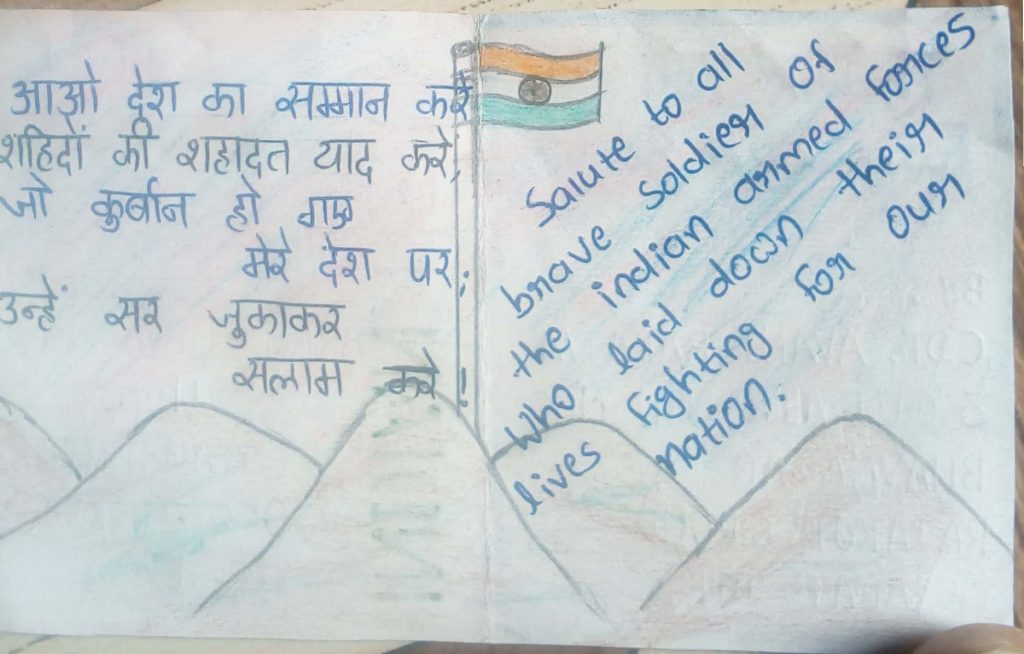 आओ देश का सम्मान करें
शहिदों की शहादत याद करे,
जो कुर्बान हो गए
मेरे देश पर;
उन्हें सर जुकाकर
सलाम करे!
Salute to all
brave soldier of
the indian armed forces
who laid down their
lives fighting for our
nation.